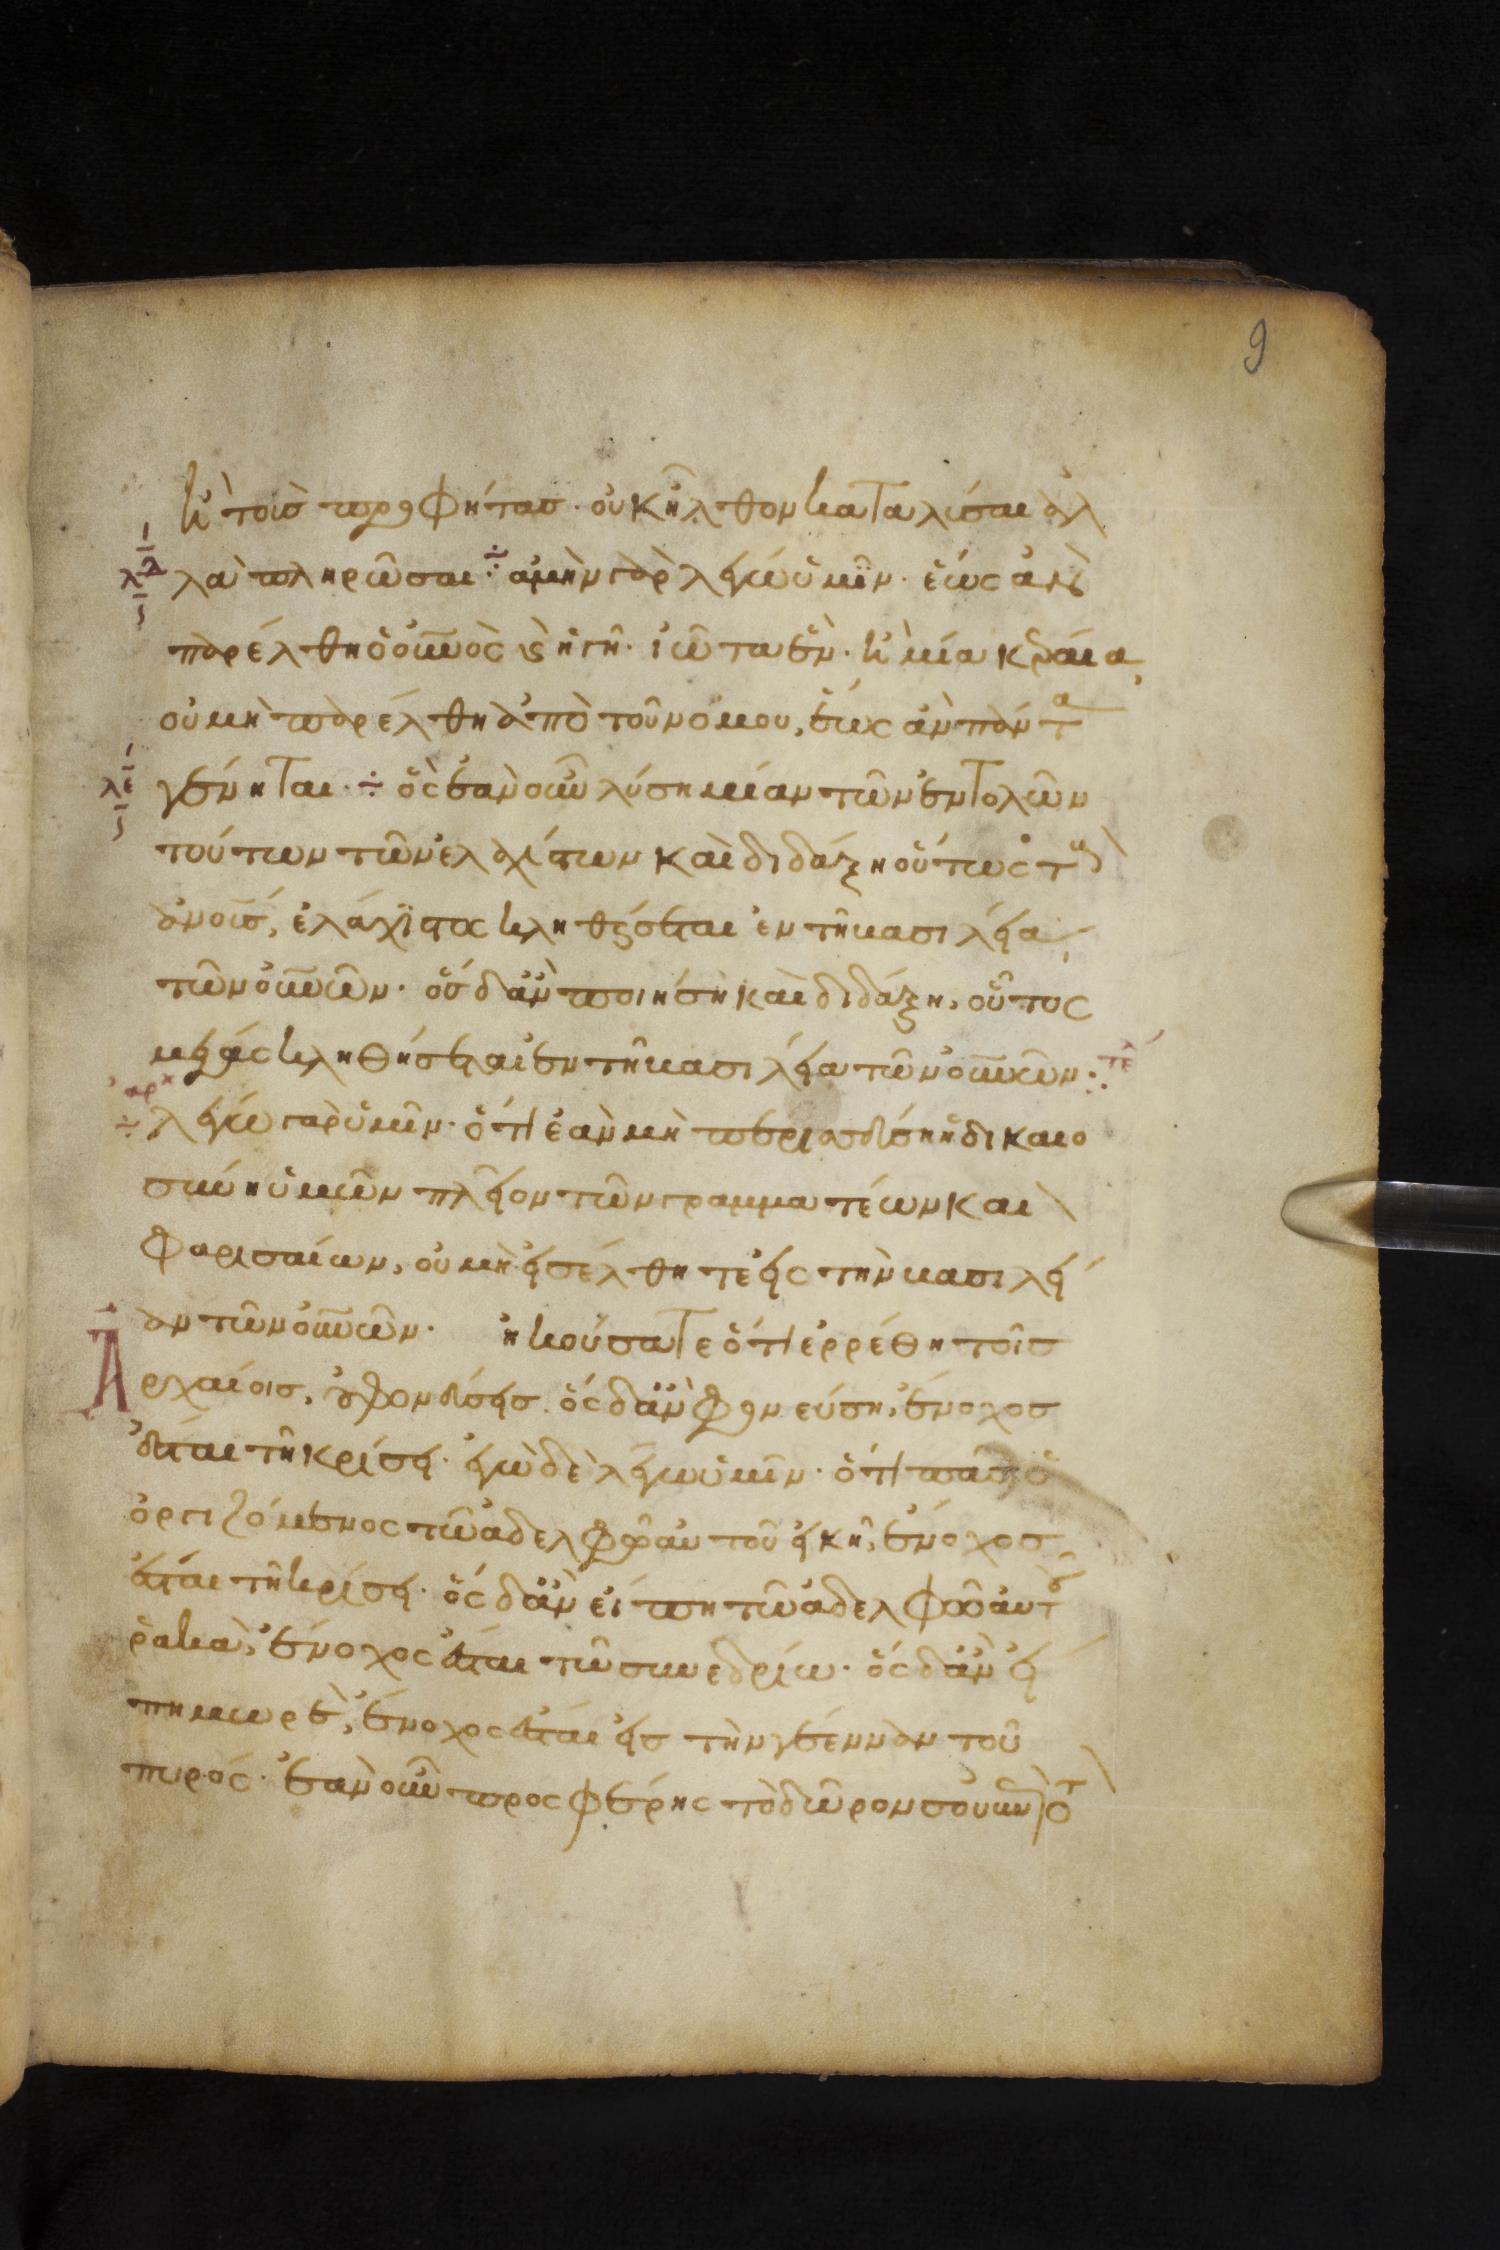 9
κ(αὶ) τοὺσ προφήτασ· οὐκ ἦλθον καταλύσαι ἀλ
λὰ πληρῶσαι ÷ ἀμὴν γὰρ λέγω ὑμῖν· ἕως ἂν
παρέλθη ὁ οὐνος κ(αὶ) ἡ γῆ· ἰῶτα ἓν· κ(αὶ) μία κεραία
οὐ μὴ παρέλθη ἀπὸ τοῦ νόμου, ἕως ἂν πάντα
γένηται· ÷ ὃς ἐὰν οὖν λύση μίαν τῶν ἐντολῶν
τούτων τῶν ἐλαχίστων καὶ διδάξη οὕτως τοὺς
ἀνους, ἐλάχιστος κληθήσεται ἐν τῆ βασιλεία
τῶν οὐνων· ὅσ δἂν ποιήση καὶ διδάξη, οὗτος
μέγας κληθήσεται ἐν τῆ βασιλεία τῶν οὐνων· τε
ἀρχ ÷ λέγω γὰρ ὑμῖν· ὅτι ἐὰν μὴ περισσεύση ἡ δικαιο
σύνη ὑμῶν πλεῖον τῶν γραμματέων καὶ
φαρισαίων, οὐ μὴ εἰσέλθητε εἰς τὴν βασιλεί
αν τῶν οὐνων· ἠκούσατε ὅτι ἐρρέθη τοῖσ
Αρχαίοισ, οὐ φονεύσεισ· ὅς δἂν φονεύση, ἔνοχοσ
ἔσται τῆ κρίσει· ἐγὼ δὲ λέγω ὑμῖν· ὅτι πᾶσ ὁ
ὀργιζόμενος τῶ ἀδελφῶ αὐτοῦ εἰκῆ, ἔνοχοσ
ἔσται τῆ κρίσει· ὅς δἂν εἴπη τῶ ἀδελφῶ αὐτοῦ
ῥακὰ, ἔνοχος ἔσται τῶ συνεδρίω· ὅς δἂν εἴ
πη μωρὲ, ἔνοχος ἔσται εἰσ τὴν γέενναν τοῦ
πυρός· ἐὰν οὖν προσφέρης τὸ δῶρον σου